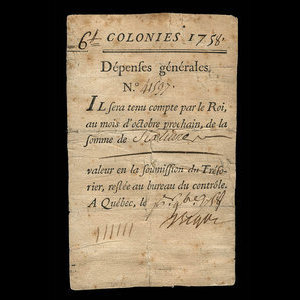 6# COLONIES 1758.
Dépenses générales,
N.º
IL sera tenu compte par le Roi,
au mois d'octobre prochain, de la
somme de Six livres
valeur en la soumission du Tréso-
rier, restée au bureau du contrôle.
A Québec, le